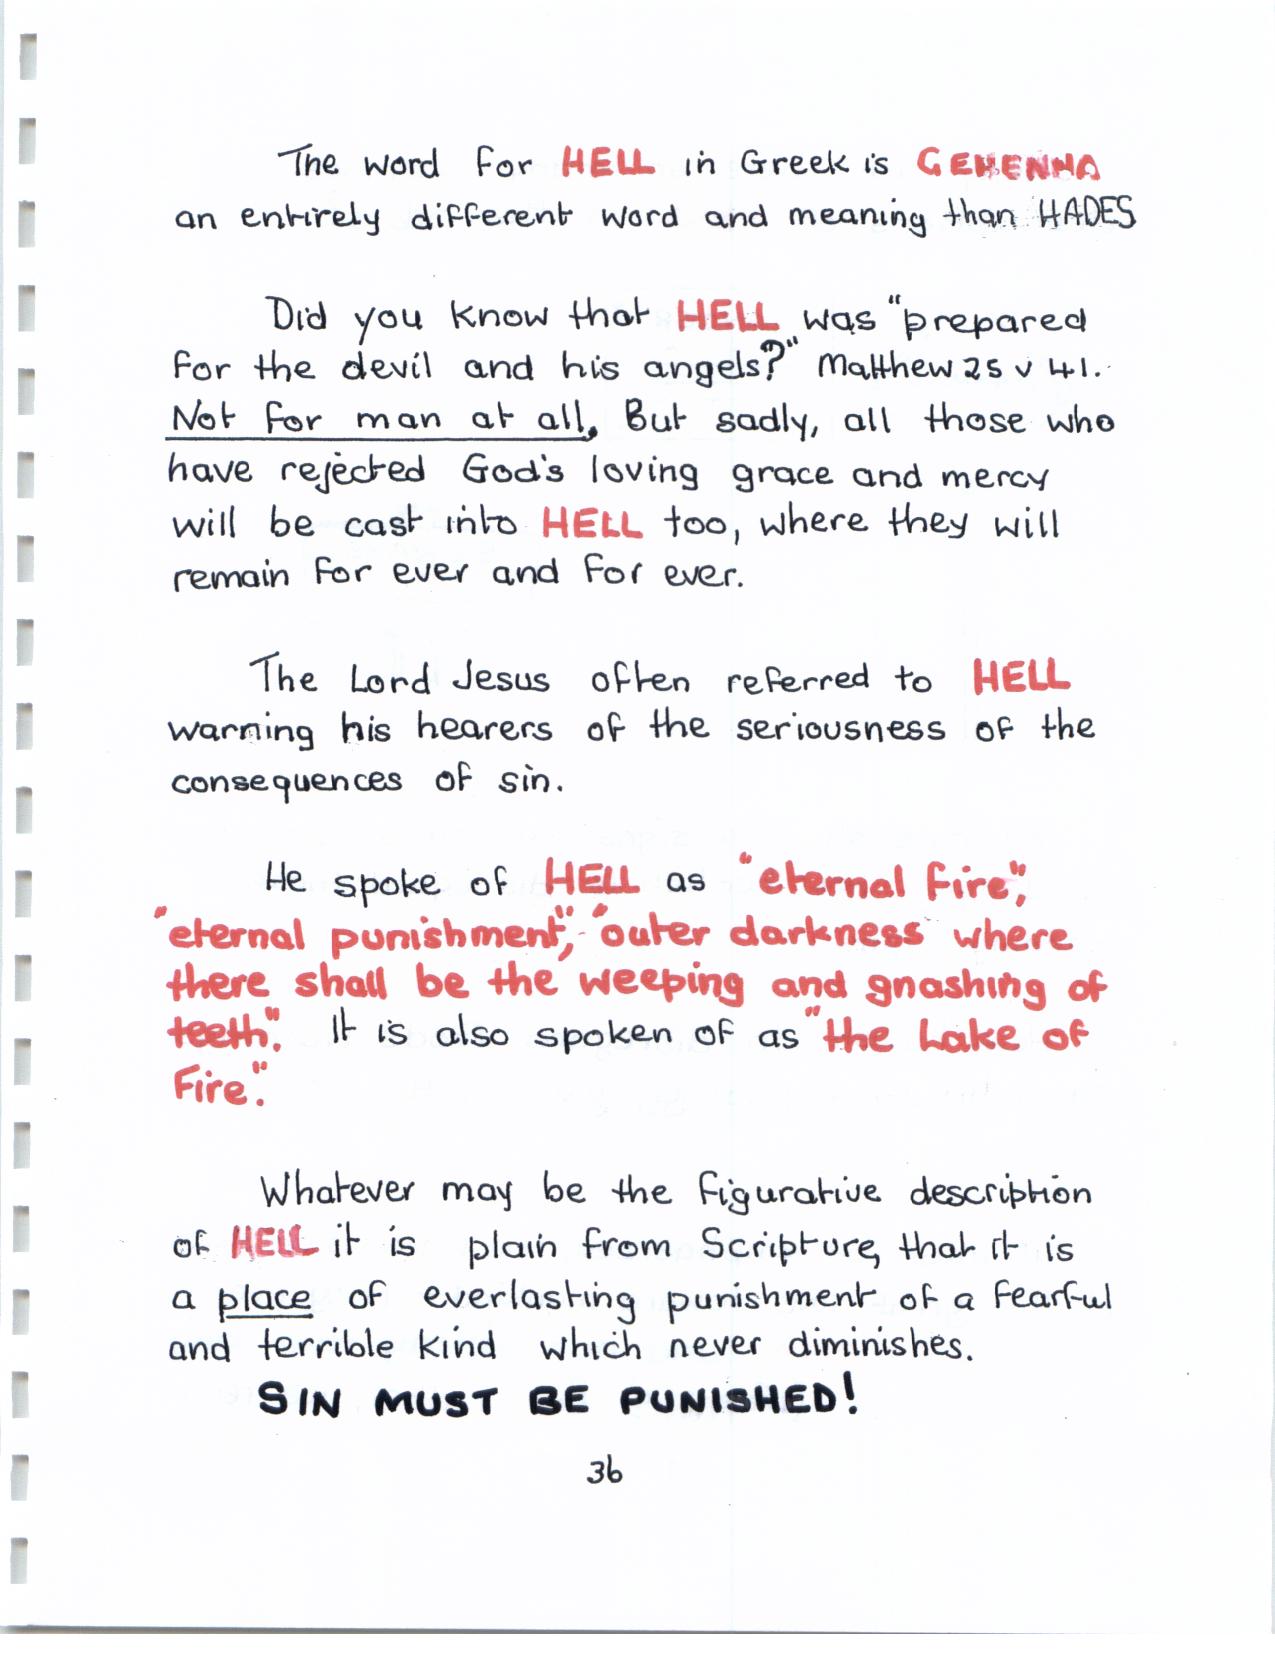 The word for HELL in Greek is GEHENNA
an entirely different word and meaning than HADES
Did you know that HELL was "prepared
for the devil and his angels?" Matthew 25 v 41.
Not for man at all, But sadly, all those who
have rejected God's loving grace and mercy
will be cast into HELL too, where they will
remain for ever and for ever.
The Lord Jesus often referred to HELL
warning his hearers of the seriousness of the
consequences of sin.
He spoke of HELL as "eternal fire",
"eternal punishment", "outer darkness where
there shall be the weeping and gnashing of
teeth". It is also spoken of as "the Lake of
Fire".
Whatever may be the figurative description
of HELL it is plain from Scripture, that it is
a place of everlasting punishment of a fearful
and terrible kind which never diminishes.
SIN MUST BE PUNISHED!
36